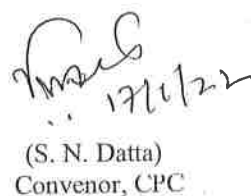 17/1/22
(S. N. Datta)
Convenor, CPC